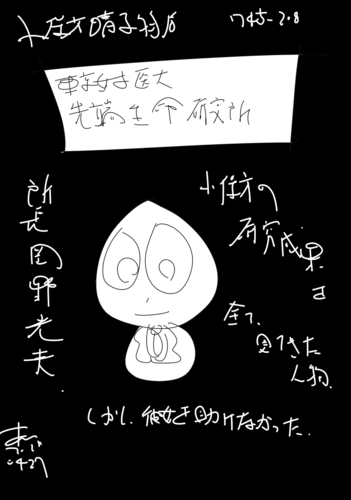 小保方晴子物語
1745-208
東京女子医大
先端生命研究所
所長岡野光夫.
小保方の
研究成果は
全て、
見てきた
人物.
しかし、彼女を助けなかった.
0427